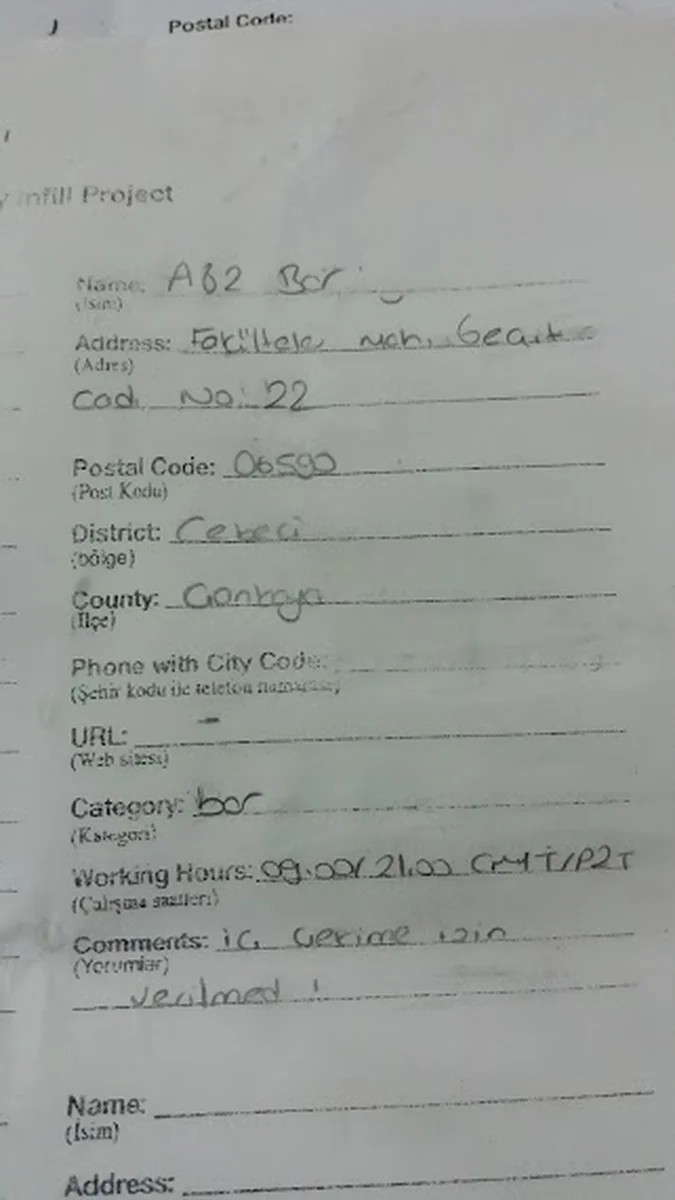 Postal Code:
Infill Project
Name: A62 Bar
(İsim)
Address: Fakülteler Mah.
(Adres)
Cad. No: 22
Postal Code: 06590
(Post Kodu)
District: Cebeci
(bölge)
County: Çankaya
(İlçe)
Phone with City Code:
(Şehir kodu ile telefon numarası)
URL: -
(Web sitesi)
Category: bar
(Kategori)
Working Hours: 09.00/21.00 CMT/PZT
(Çalışma saatleri)
Comments: iç çekime izin
(Yorumlar)
verilmedi
Name:
(İsim)
Address: